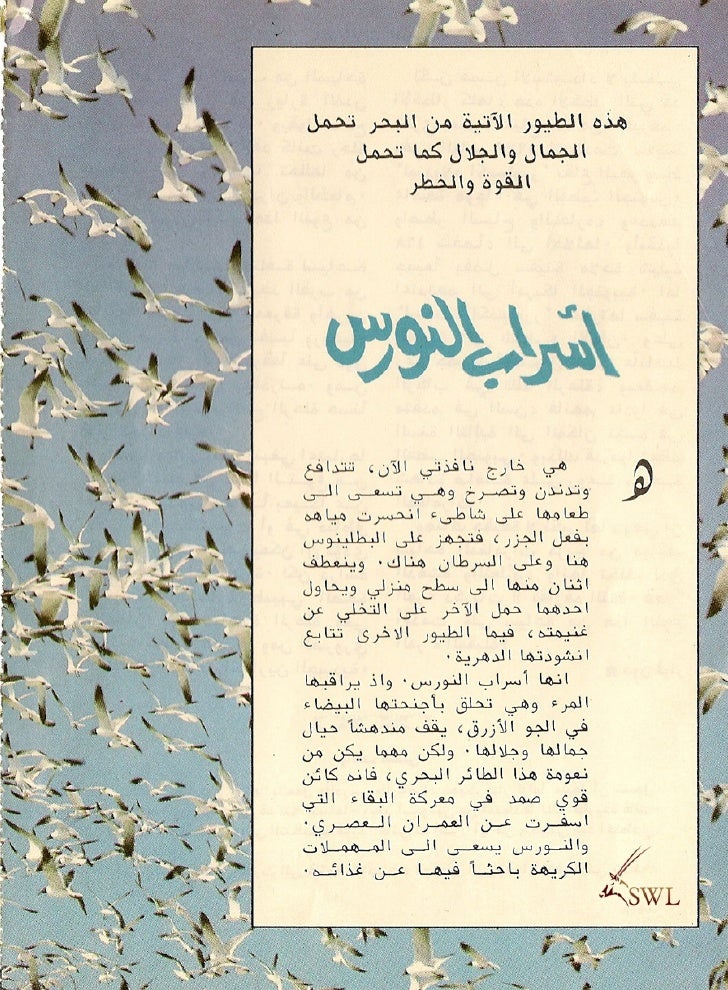 هذه الطيور الآتية من البحر تحمل
الجمال والجلال كما تحمل
القوة والخطر
أسراب النورس
ه
هي خارج نافذتي الآن، تتدافع
وتدندن وتصرخ وهي تسعى الى
طعامها على شاطىء انحسرت مياهه
بفعل الجزر، فتجهز على البطلينوس
هنا وعلى السرطان هناك. وينعطف
اثنان منها الى سطح منزلي ويحاول
احدهما حمل الآخر على التخلي عن
غنيمته، فيما الطيور الاخرى تتابع
انشودتها الدهرية.
انها أسراب النورس. واذ يراقبها
المرء وهي تحلق بأجنحتها البيضاء
في الجو الأزرق، يقف مندهشاً حيال
جمالها وجلالها. ولكن مهما يكن من
نعومة هذا الطائر البحري، فانه كائن
قوي صمد في معركة البقاء التي
اسفرت عن العمران العصري.
والنورس يسعى الى المهملات
الكريهة باحثاً فيها عن غذائه.
SWL